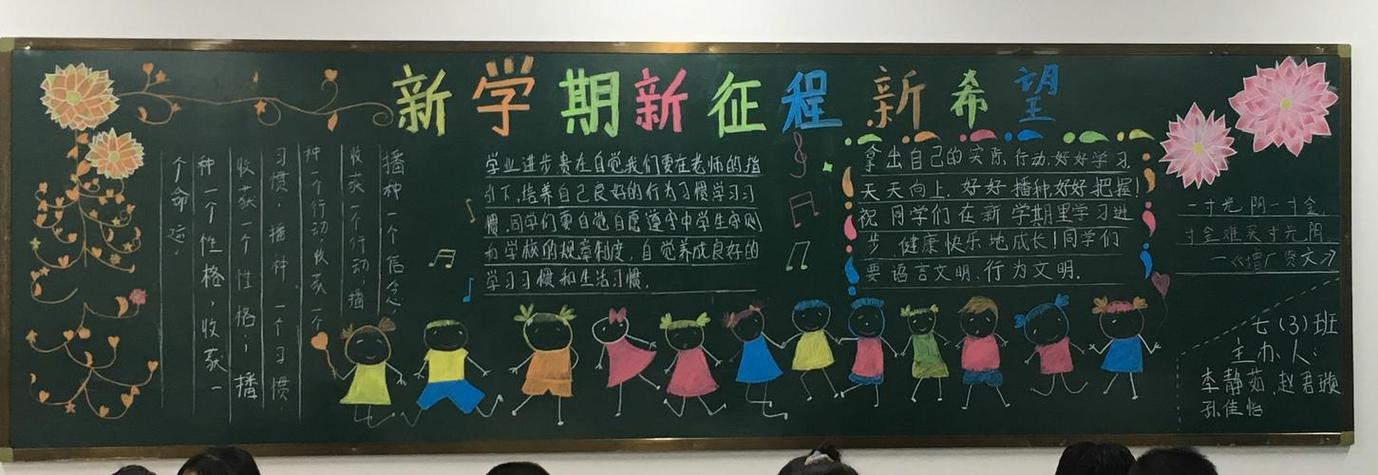 新学期新征程新希望
播种一个信念，
收获一个行动，播
种一个行动，收获一个
习惯，播种一个习惯，
收获一个性格；播
种一个性格，收获一
个命运。
学业进步贵在自觉我们要在老师的指
引下，培养自己良好的行为习惯学习习
惯。同学们要自觉自愿遵守中学生守则
和学校的规章制度，自觉养成良好的
学习习惯和生活习惯。
拿出自己的实际行动，好好学习，
天天向上，好好播种，好好把握！
祝同学们在新学期里学习进
步，健康快乐地成长！同学们
要语言文明，行为文明。
一寸光阴一寸金，
寸金难买寸光阴
——《增广贤文》
七（3）班
主办人：
李静茹，赵君璇
孙佳怡